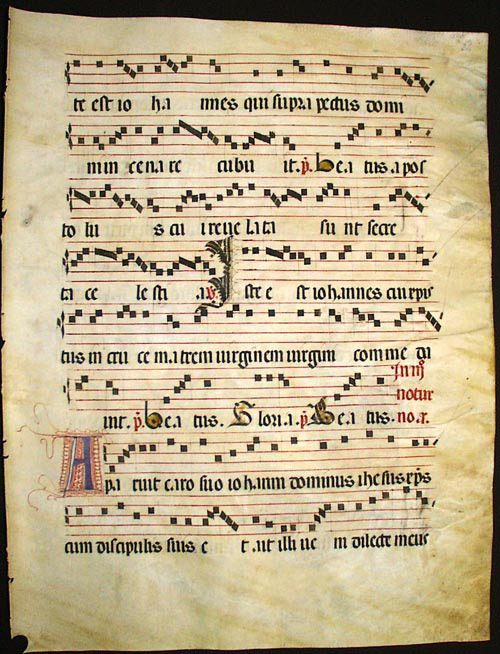 te est io ha nnes qui supra pectus domi
ni in cena re cubu it. p. be a tus. a pos
to lu s cu i reue la ta su nt secre
ta ce le sti a. v. Iste e st iohannes cui xpus
tus in cru ce matrem uirginem uirgini comme da
In iij
notur
uit. p. be a tus. Glori a. p. Be a tus. no. R.
Apa ruit caro suo iohanni dominus ihesus xps
cum discipulis suis e t ait illi ue ni dilecte meus